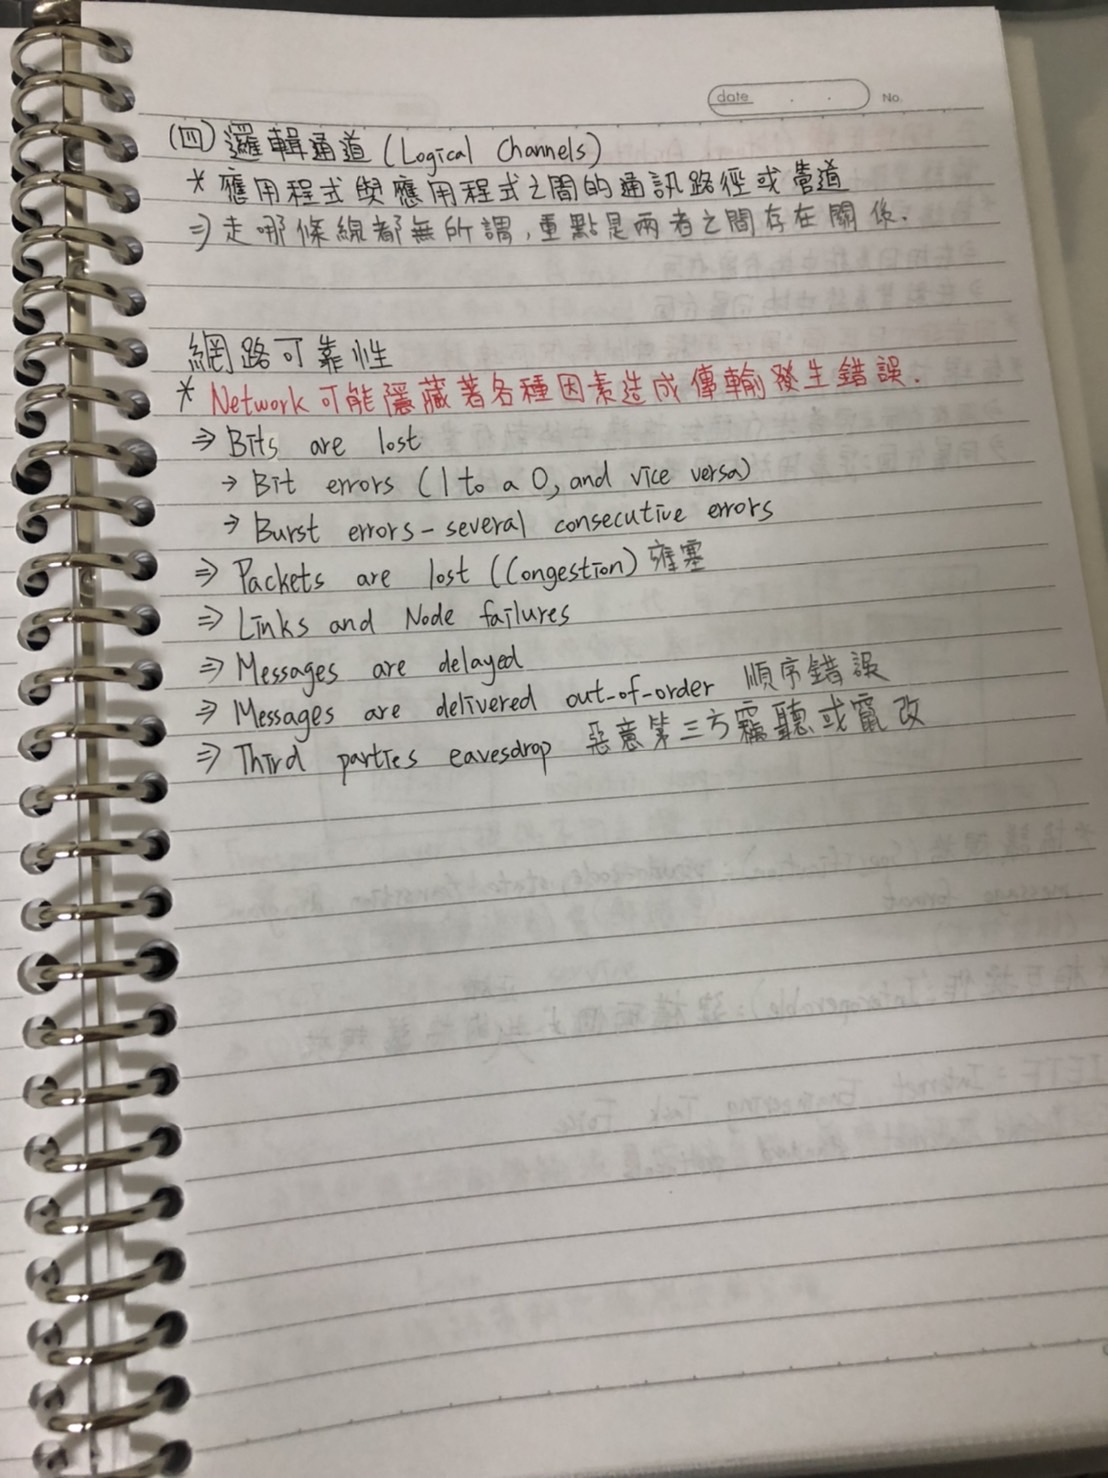 date . . No.
(四) 邏輯通道 (Logical Channels)
* 應用程式與應用程式之間的通訊路徑或管道
⇒ 走哪條線都無所謂,重點是兩者之間存在關係.
網路可靠性
* Network 可能隱藏著各種因素造成傳輸發生錯誤.
⇒ Bits are lost
→ Bit errors (1 to a 0, and vice versa)
→ Burst errors - several consecutive errors
⇒ Packets are lost (Congestion) 雍塞
⇒ Links and Node failures
⇒ Messages are delayed
⇒ Messages are delivered out-of-order 順序錯誤
⇒ Third parties eavesdrop 惡意第三方竊聽或竄改